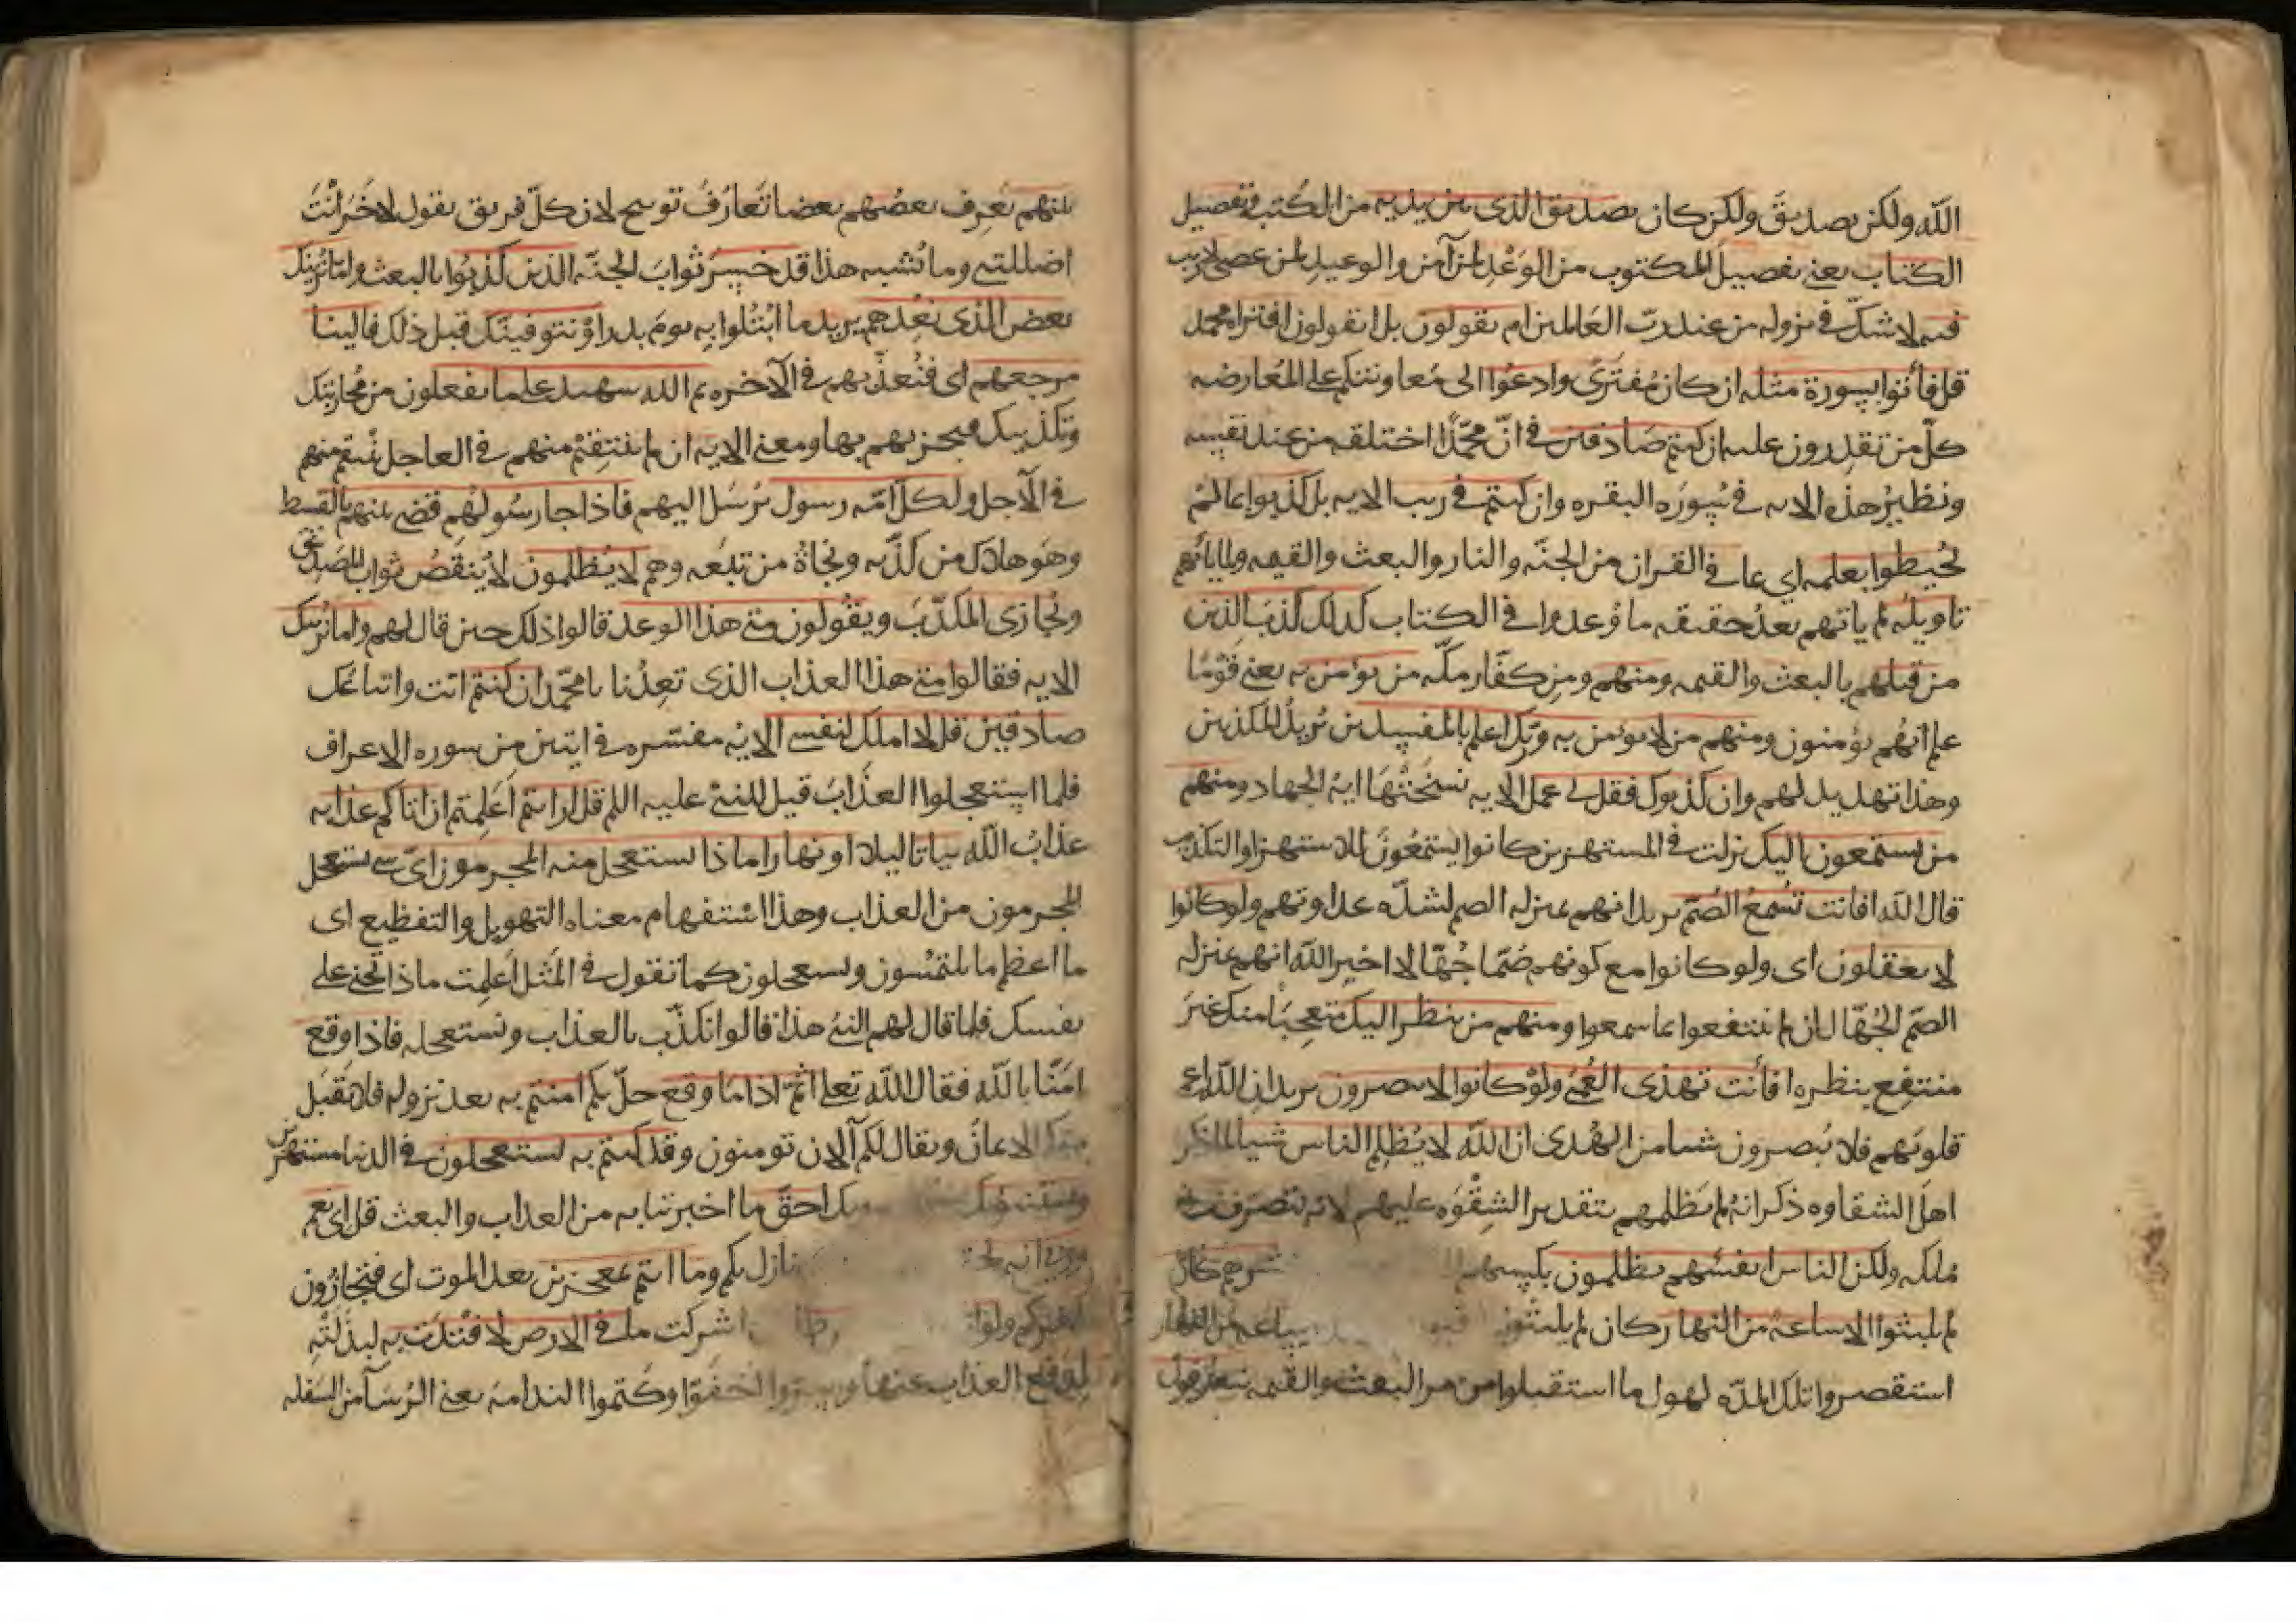 الله ولكن تصديق ولكن كان تصديق الذى بين يديه من الكتب وتفصيل
الكتاب يعنى تفصيل المكتوب من الوَعْدِ لمن آمن والوعيد لمن عصى لا ريب
فيه لا شكّ فى نزوله من عند ربّ العالمين ام يقولون بل اتقولون افتراه محمد
قل فأتوا بسورة مثله ان كان مُفترًى وادعُوا الى مُعاونتكم على المُعارضه
كلّ من تقدرون عليه ان كنتم صَادقين فى انّ محمّدًا اختلقه من عند نفسه
ونظيرُ هذه الايه فى سُورَه البقره وان كنتم فى ريب الايه بل كذبوا بما لمْ
يُحيطوا بعلمه اي بما فى القران من الجنّه والنار والبعث والقيمه ولما يأتهم
تاويلُه لم ياتهم بعدُ حقيقه ما وُعدوا فى الكتاب كذلك كذبَ الذين
من قبلهم بالبعث والقيمه ومنهم ومن كفّار مكّه من يؤمن به يعنى قوْمًا
علم انّهُم يؤمنون ومنهم من لا يؤمن به وربّك اعلم بالمفسدين يُريدُ المكذبين
وهذا تهديد لهم وان كذبوك فقل لى عملى الايه نسَخَتْهَا ايهُ الجهاد ومنهم
من يستمعون اليك نزلت فى المستهزين كانوا يَستمعُونَ للاستهزا والتكذيب
قال الله افانت تُسْمعُ الصُمّ يريد انهم بمنزله الصم لشدّه عداوتهم ولو كانوا
لا يعقلون اى ولو كانوا مع كونهم صُمّا جُهّالا اخبر الله انهم بمنزله
الصّم الجُهّال ان لم ينتفعوا بما سمعوا ومنهم من ينظر اليك متعجبًا منك غيرَ
منتفع بنظره افأنت تهدى العُمْىَ ولوْ كانوا لا يبصرون يريد ان الله اعمى
قلوبَهم فلا يُبصرون شيا من الهُدى ان الله لا يُظلم الناس شيا لما ذكر
اهلَ الشقاوه ذكر انهُ لم يَظلمهم بتقدير الشِقْوَه عليهم لانه تصرّف فى
مُلكه ولكن الناس انفسَهم يظلمون بكسبهم كان
لم يلبثوا الا ساعةً من النهار كان لم يلبثوا من النهار
استقصروا تلك المدّه لهول ما استقبلوا من امر البعث والقيمه يتعارفون
بينهم يَعرِف بعضُهم بعضا تعَارُفَ توبيخ لان كلّ فريق يقول للاخَر انْتَ
اضللتنى وما يُشبه هذا قد خسِرَ ثوابَ الجنّه الذين كذبُوا بالبعث وامّا نُرينك
بعض الذى نَعِدهم يريد ما ابْتُلوا به يومَ بدر اوْ نتوفينّك قبل ذلك فالينا
مرجعهم اى فنُعذّبهم فى الآخره ثم الله شهيد على ما يفعلون من مُحاربتك
وتكذيبك فيجزيهم بها ومعنى الايه ان لم ينتقِمْ منهم فى العاجل نَنتقم منهم
فى الآجل ولكل امّه رسول يُرْسَل اليهم فاذا جا رسُولهُم قضى بينهم بالقسط
وهو هلاك من كذّبه ونجاةُ من تبعَه وهم لا يُظلمون لا يُنقصُ ثواب المُصَدّق
ويُجازى المكذّبَ ويقُولون متى هذا الوعد قالوا ذلك حين قال لهم واما نرينك
الايه فقالوا متى هذا العذاب الذى تعِدُنا يا محمّد ان كنتم انت واتباعُك
صادقين قل لا املك لنفسى الايه مفسّره فى ايتين من سوره الاعراف
فلما استعجلوا العذَابَ قيل للنبىّ عليه السلم قل ارايتم اعَلِمتم ان اتاكم عذابه
عذابُ الله بياتا ليلا او نهارا ماذا يستعجل منه المجرمون اىّ شى يستعجل
المجرمون من العذاب وهذا استفهام معناه التهويل والتفظيع اى
ما اعظم ما يلتمسون ويستعجلون كما تقول فى المثل اعَلِمت ماذا تجنى على
نفسك فلما قال لهم النبىُ هذا قالوا نكذّب بالعذاب ونستعجله فاذا وقع
امَنّا بالله فقال الله تعلى اثُمّ اذا مَا وقع حلّ بكم امنتم به بعد نزوله فلا يُقبَل
منكم الايمانُ ويقال لكم آلان تومنون وقد كنتم به تستعجلون فى الدنيا مستهزين
ويستنبئونك احقّ ما اخبرتنا به من العذاب والبعث قل اى نعم
وربى انه لحق نازل بكم وما انتم بمعجزين بعد الموت اى فتجازُون
بكفركم ولو ان اشركت ما فى الارض لافتدَت به لبذلَتْهِ
لدفع العذاب عنها واسرّوا اخفَوْا وكتموا الندامة يعنى الرُسَآ من السَفله